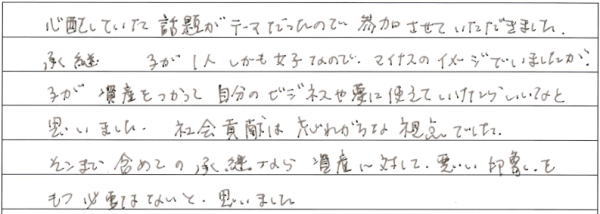 心配していた話題がテーマだったので参加させていただきました。
承継　子が1人しかも女子なので、マイナスのイメージでいましたが、
子が資産をつかって自分のビジネスや夢に使えていけたらいいなと
思いました。社会貢献は忘れがちな視点でした。
そこまで含めての承継なら資産に対して、悪い印象を
もつ必要はないと、思いました